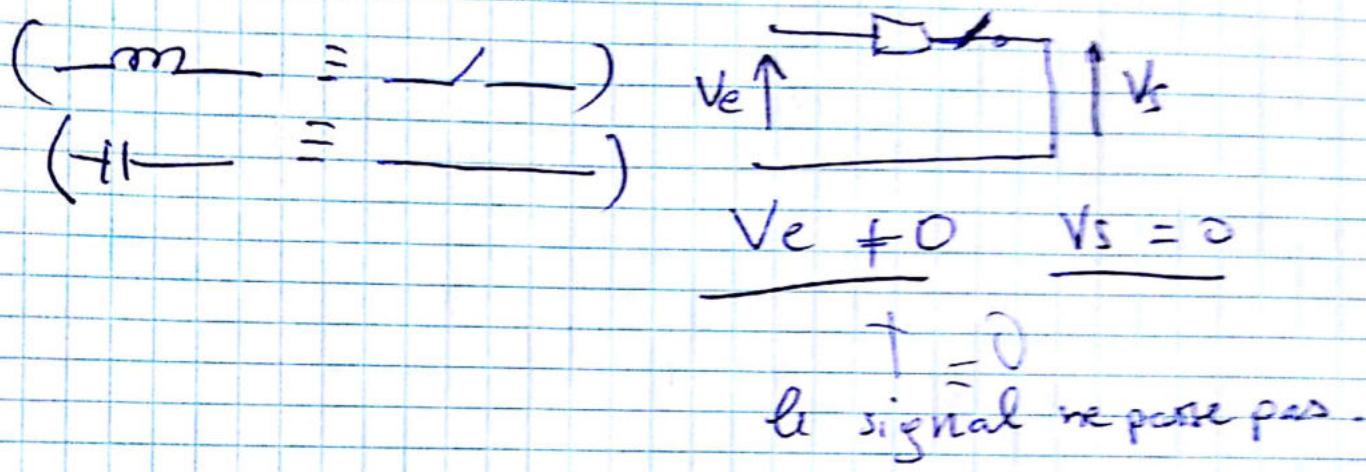 ( ≡ )
( ≡ )
Ve Vs
Ve ≠ 0 Vs = 0
T = 0
le signal ne passe pas.